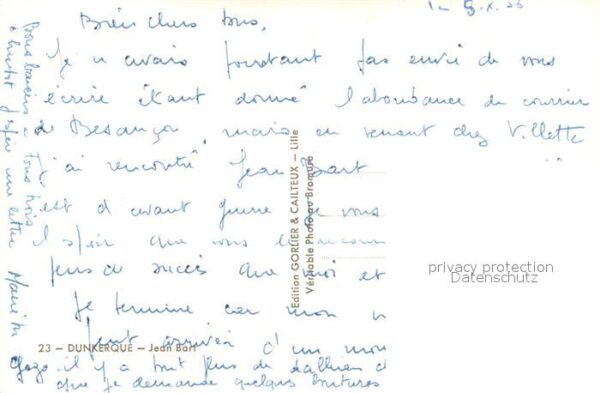 Le 5.X.56
Bien chers tous,
Je n'avais pourtant pas envie de vous
écrire étant donné l'abondance du courrier
de Besançon, mais en venant chez Villette
j'ai rencontré Jean Bart
est d'avant guerre Je vous
J'espère que vous
plus de succès que moi et
Je termine car mon
peut arriver d'un mo
il y a tout plus de
que je demande quelques
Bons baisers à Tous trois
à bientôt j'espère une lettre
23 — DUNKERQUE — Jean Bart
Edition GORLIER & CAILTEUX — Lille
Véritable Photo au Bromure
privacy protection
Datenschutz